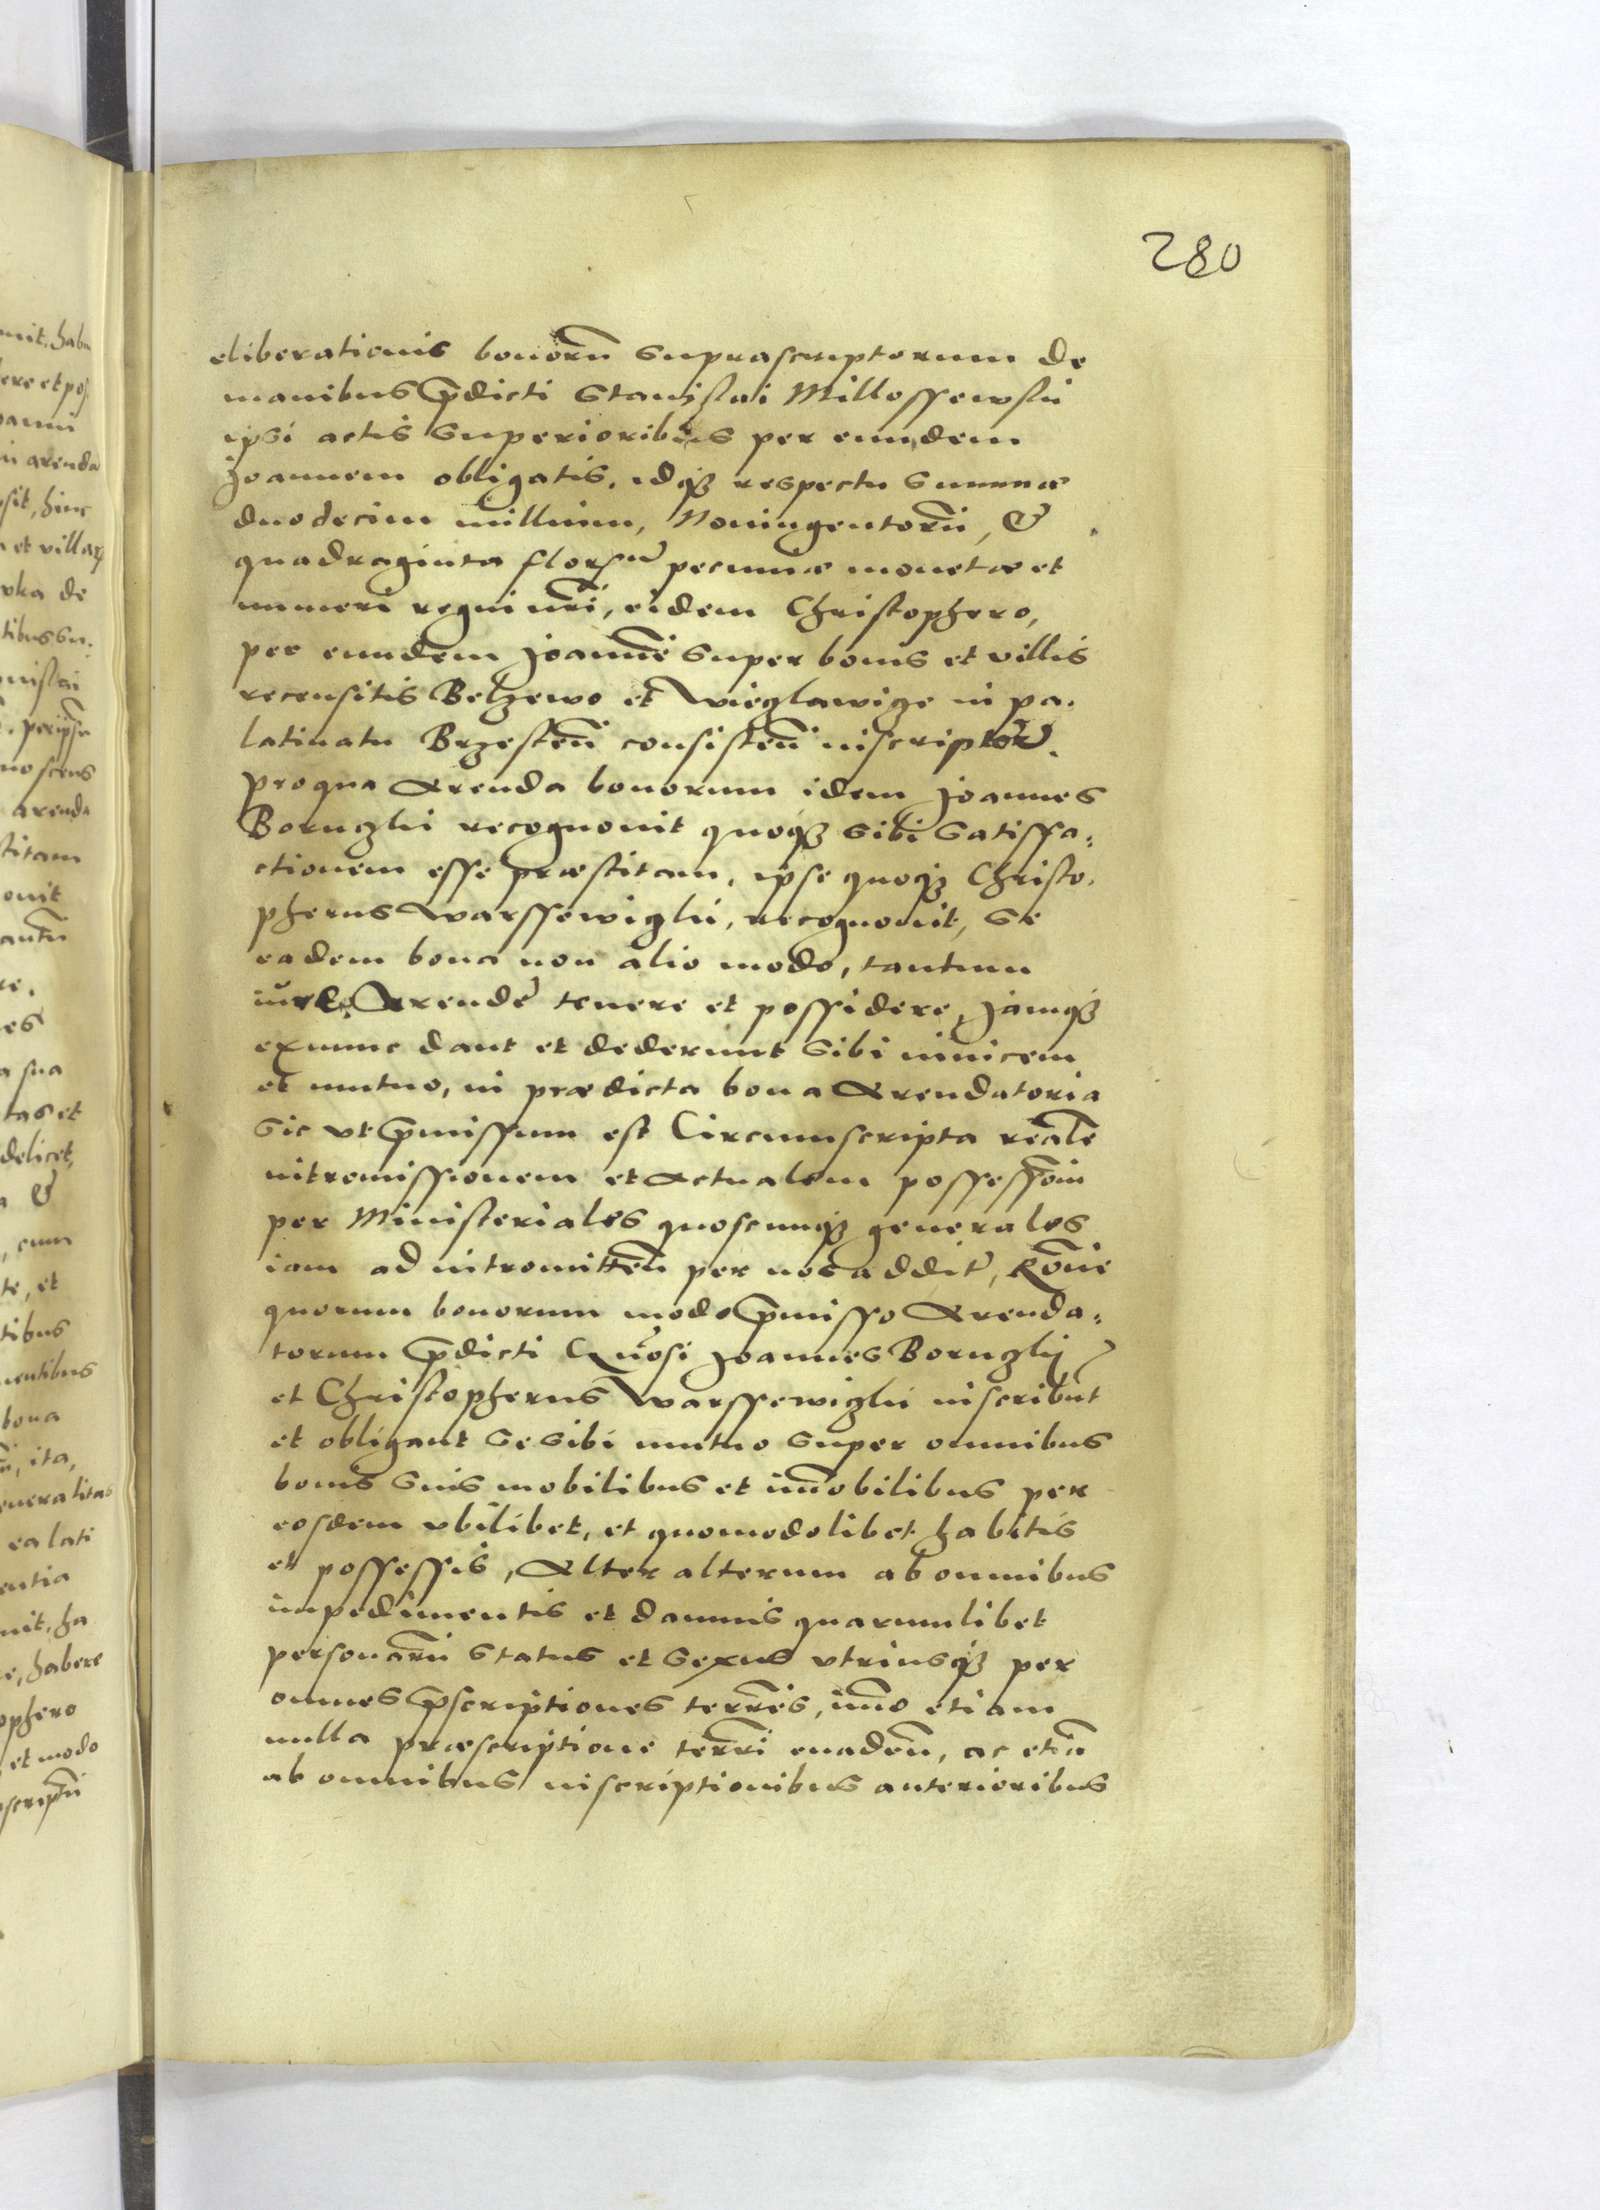 280
eliberationis bonorū suprascriptorum de
manibus p̄dicti Stanislai Millossewskii
ipsi actis superioribus per eundem
Joannem obligatis, idq3 respectu summæ
duodecim millium, Noningentorū, &
quadraginta flor pecuniæ monetæ et
numeri regni nr̄i, eidem Christophero,
per eundem Joannē super bonis et villis
recensitis Belzewo et Wiezlawize in pa.
latinatu Brzesten̄ consisten̄ inscriptor̄.
pro qua Arenda bonorum idem Joannes
Bornzlii recognouit quoq3 sibi satisffa:
ctionem esse præstitam, ipse quoq3 Christo.
pherus Warssewizlii, recognouit, se
eadem bona non alio modo, tantum
iure Arende tenere et possidere, Jamq3
ex nunc dant et dederunt sibi inuicem
et mutuo, in prædicta bona Arendatoria
sic vt p̄missum est Circumscripta realē
intromissionem et Actualem possessionī
per Ministeriales quoscunq3 generales
iam ad intromitten̄ per nos addit, Rōne
quorum bonorum modo p̄misso Arenda:
torum p̄dicti Gn̄osi Joannes Bornzlij
et Christopherus Warssewizlii inscribūt
et obligant se sibi mutuo super omnibus
bonis suis mobilibus et im̄obilibus per
eosdem vbilibet, et quomodolibet habitis
et possessis, Alter alterum ab omnibus
impedimentis et damnis quarumlibet
personarū status et sexus vtriusq3 per
omnes p̄scriptiones terrēs, im̄o etiam
nulla præscriptione terrr̄i euaden̄, ac etiā
ab omnibus inscriptionibus anterioribus